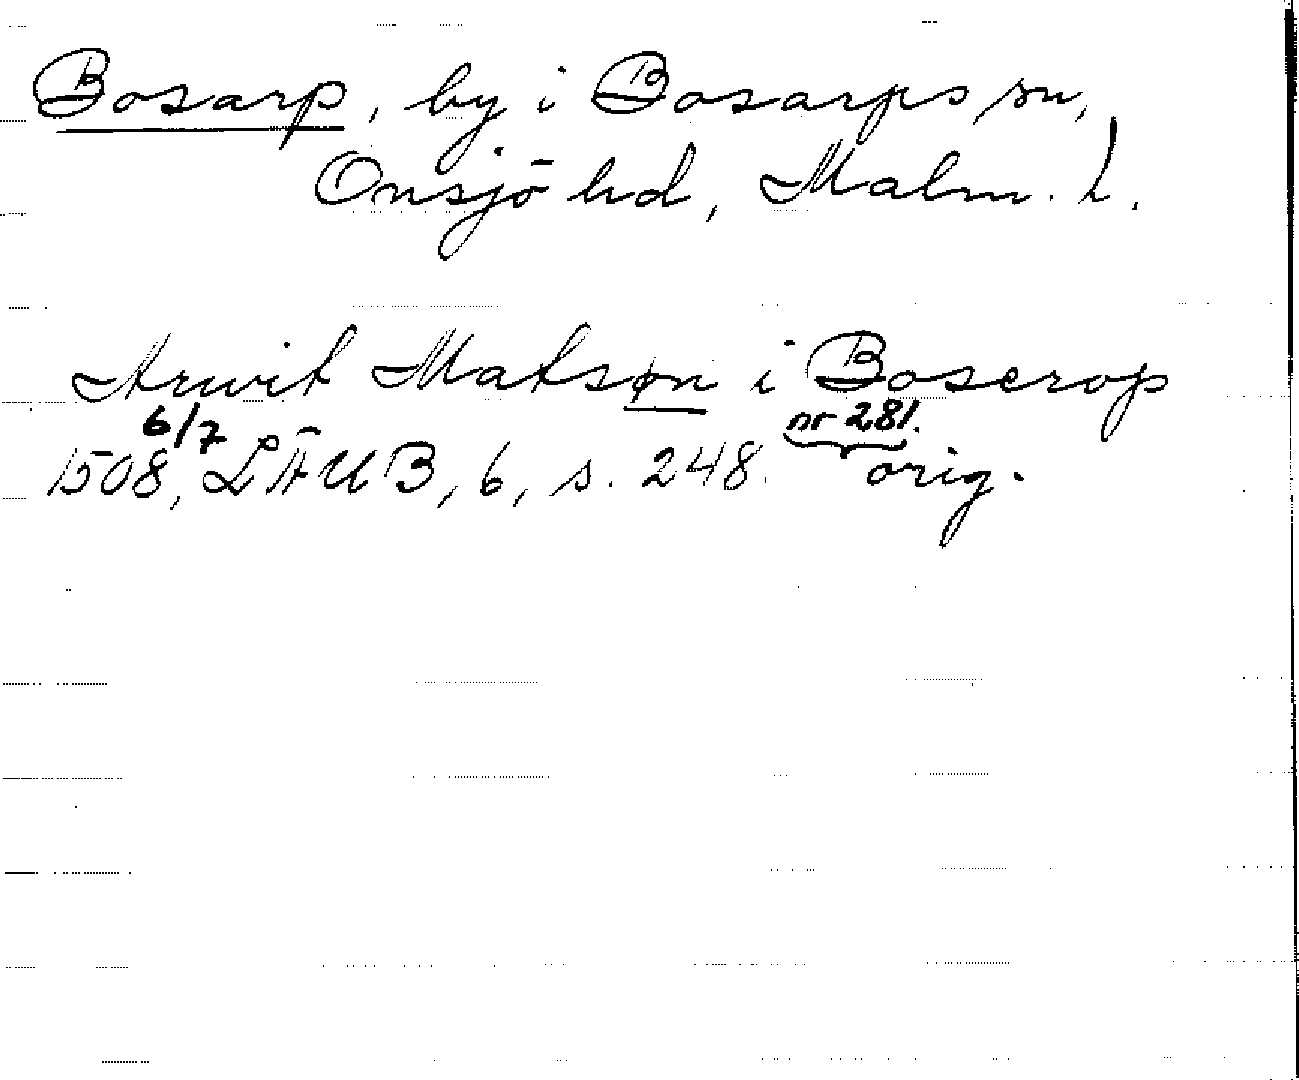 Bosarp, by i Bosarps sn,
Onsjö hd, Malm. l.
Arwit Matsøn i Boserop
6/7 nr 281.
1508, LÄUB, 6, s. 248. orig.